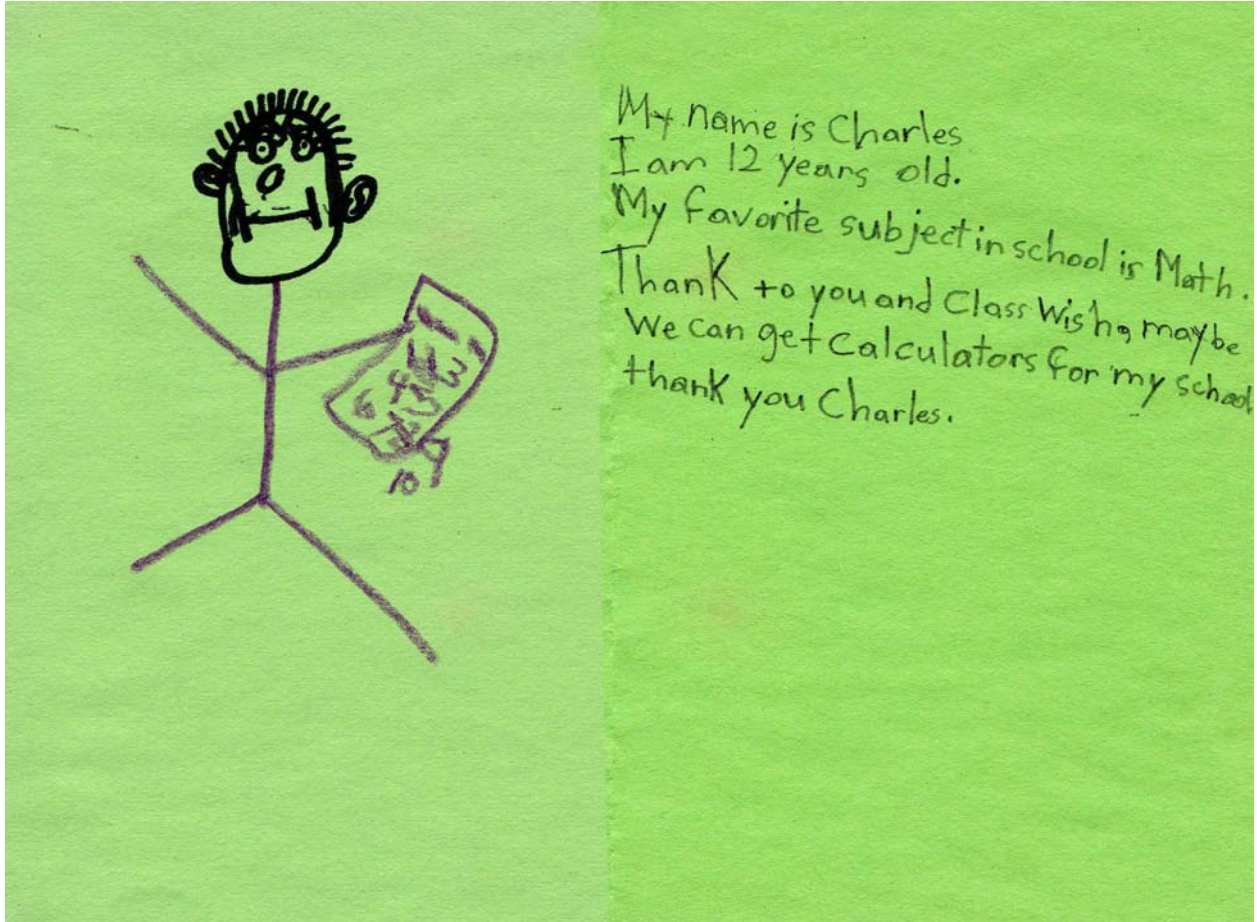 My name is Charles
I am 12 years old.
My favorite subject in school is Math.
Thank to you and Class Wish, maybe
We can get Calculators for my school
thank you Charles.
10